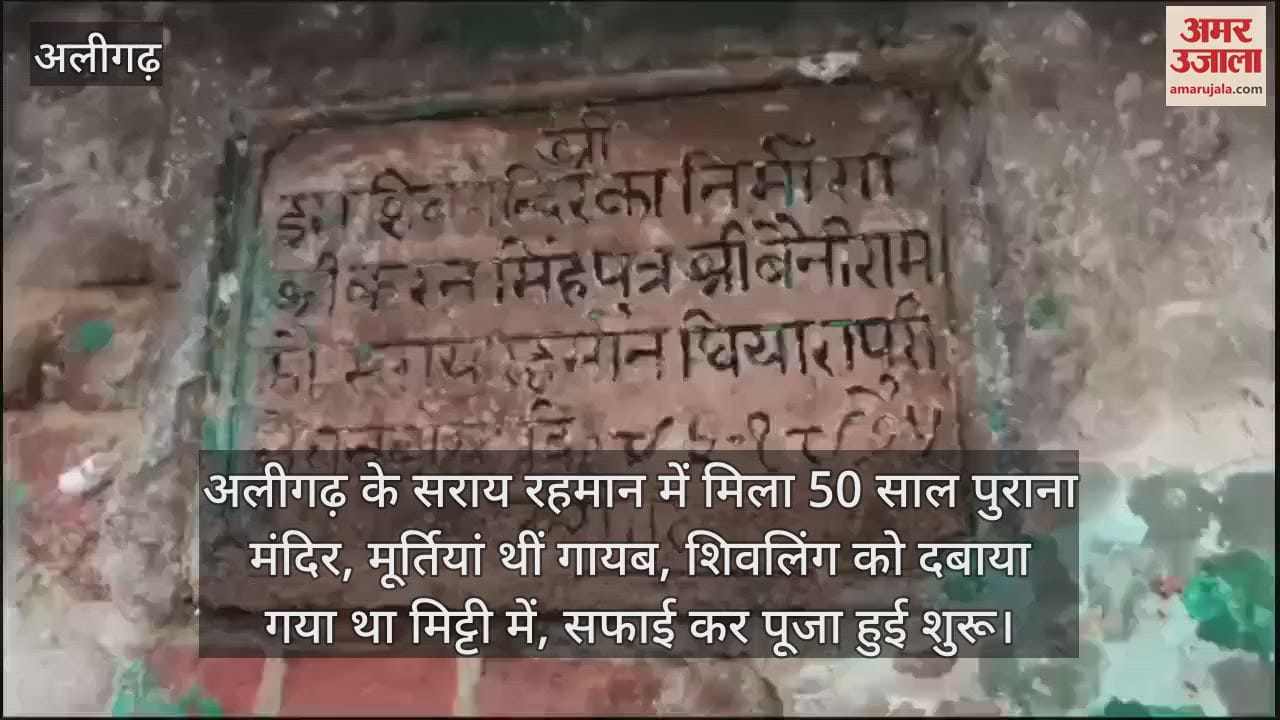 अलीगढ़
अमर
उजाला
amarujala.com
श्री
इस शिवमन्दिर का निर्माण
श्री करन सिंह पुत्र श्री बैनीराम
सराय रहमान घियारापुरी
अलीगढ़ के सराय रहमान में मिला 50 साल पुराना
मंदिर, मूर्तियां थीं गायब, शिवलिंग को दबाया
गया था मिट्टी में, सफाई कर पूजा हुई शुरू।